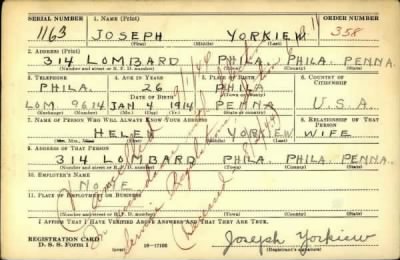 SERIAL NUMBER 1. NAME (Print) ORDER NUMBER
1163 JOSEPH YORKIEW 358
(First) (Middle) (Last)
2. ADDRESS (Print)
314 LOMBARD PHILA. PHILA. PENNA.
(Number and street or R. F. D. number) (Town) (County) (State)
3. TELEPHONE 4. AGE IN YEARS 5. PLACE OF BIRTH 6. COUNTRY OF CITIZENSHIP
PHILA. 26 PHILA
DATE OF BIRTH (Town or county)
LOM. 9614 JAN 4 1914 PENNA U.S.A.
(Exchange) (Number) (Mo.) (Day) (Yr.) (State or country)
7. NAME OF PERSON WHO WILL ALWAYS KNOW YOUR ADDRESS 8. RELATIONSHIP OF THAT PERSON
HELEN YORKIEW WIFE
(Mr., Mrs., Miss) (First) (Middle) (Last)
9. ADDRESS OF THAT PERSON
314 LOMBARD PHILA. PHILA. PENNA.
(Number and street or R. F. D. number) (Town) (County) (State)
10. EMPLOYER'S NAME
NONE
11. PLACE OF EMPLOYMENT OR BUSINESS
(Number and street or R. F. D. number) (Town) (County) (State)
I AFFIRM THAT I HAVE VERIFIED ABOVE ANSWERS AND THAT THEY ARE TRUE.
REGISTRATION CARD
D. S. S. Form 1 16-17105 Joseph Yorkiew
(Registrant's signature)
Cancelled
in accordance
Service Regulations